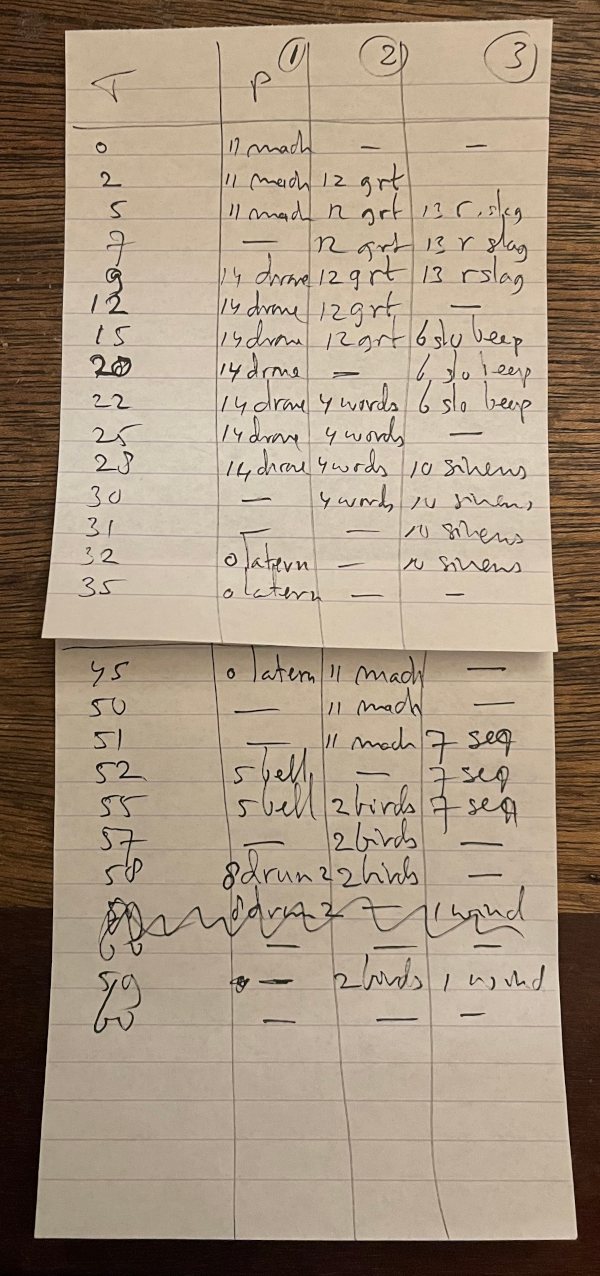 1 2 3
T P
0 11 mach — —
2 11 mach 12 grt
5 11 mach 12 grt 13 r. slag
7 — 12 grt 13 r slag
9 14 drone 12 grt 13 r slag
12 14 drone 12 grt —
15 14 drone 12 grt 6 slo beep
20 14 drone — 6 slo beep
22 14 drone 4 words 6 slo beep
25 14 drone 4 words —
28 14 drone 4 words 10 sirens
30 — 4 words 10 sirens
31 — — 10 sirens
32 0 latern — 10 sirens
35 0 latern — —
45 0 latern 11 mach —
50 — 11 mach —
51 — 11 mach 7 seq
52 5 bell — 7 seq
55 5 bell 2 birds 7 seq
57 — 2 birds —
58 8 drum 2 2 birds —
8 drum 2 — 1 wind
60 — — —
59 — 2 birds 1 wind
60 — — —